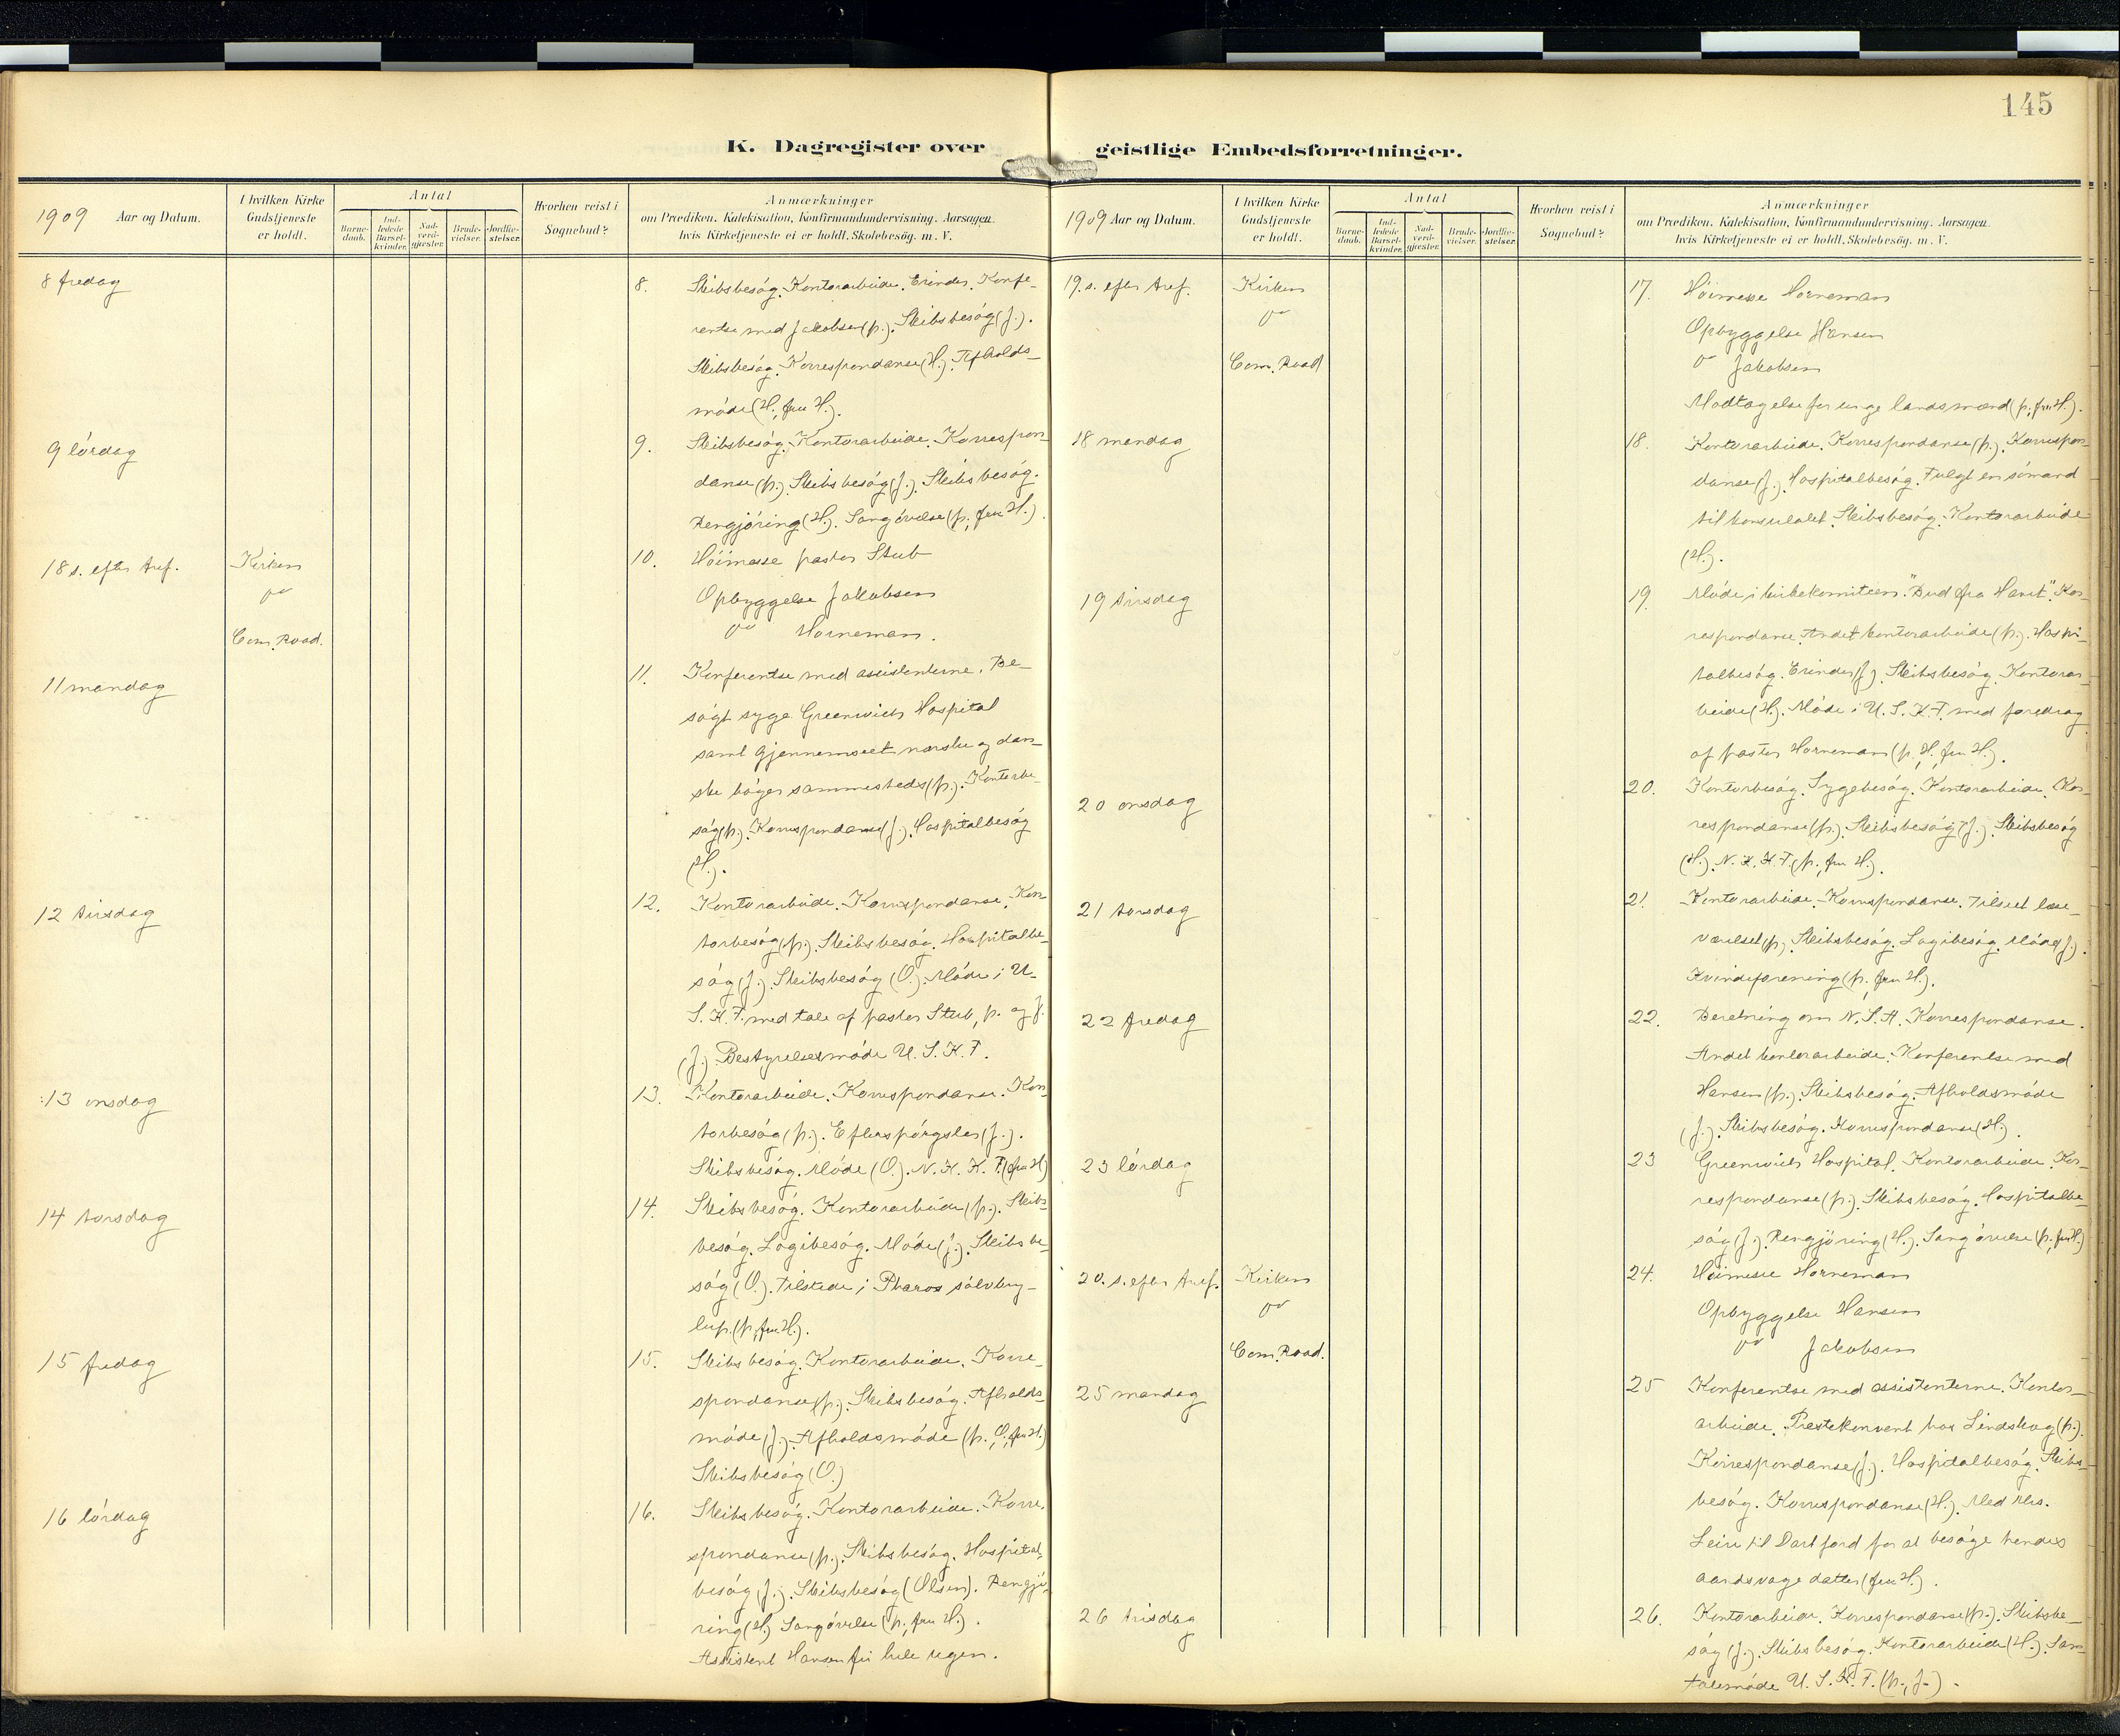 145
K. Dagregister over geistlige Embedsforretninger.
1909 Aar og Datum.
I hvilken Kirke Gudstjeneste er holdt.
Antal
Barnedaab.
Indledede Barselkvinder.
Nadverdgjæster.
Brudevielser.
Jordfæstelser.
Hvorhen reist i Sognebud?
Anmærkninger
om Prædiken, Katekisation, Konfirmandundervisning. Aarsagen, hvis Kirketjeneste ei er holdt. Skolebesög. m. V.
8 fredag
8. Skibsbesög. Kontorarbeide. Erinder. Konfe-
rentse med Jakobsen (p.). Skibsbesög (J.).
Skibsbesög. Korrespondanse (H.). Afholds-
möde (H., fru H.).
9 lördag
9. Skibsbesög. Kontorarbeide. Korrespon-
danse (p.). Skibsbesög (J.). Skibsbesög.
Rengjöring (H.). Sangövelse (p., fru H.).
18 s. efter tref.
Kirken
"
Com. Road.
10. Höimesse pastor Stub
Opbyggelse Jakobsen
" Horneman.
11 mandag
11. Konferentse med assistenterne. Be-
sögt syge Greenwich Hospital
samt gjennemseet norske og dan-
ske böger sammesteds (p.). Kontorbe-
sög (p.). Korrespondanse (J.). Hospitalbesög
(H.).
12 tirsdag
12. Kontorarbeide. Korrespondanse. Kon-
torbesög (p.). Skibsbesög. Hospitalbe-
sög (J.). Skibsbesög (O.). Möde i U.
S. K. F. med tale af pastor Stub, p. og J.
(J.). Bestyrelsesmöde U. S. K. F.
13 onsdag
13. Kontorarbeide. Korrespondanse. Kon-
torbesög (p.). Efterspörgsler (J.).
Skibsbesög. Möde (O.). N. K. K. F. (fru H.)
14 torsdag
14. Skibsbesög. Kontorarbeide (p.). Skibs-
besög. Logibesög. Möde (J.). Skibsbe-
sög (O.). Tilstede i Pharos sölvbryl-
lup. (p., fru H.).
15 fredag
15. Skibsbesög. Kontorarbeide. Korre-
spondanse (p.). Skibsbesög. Afholds-
möde (J.). Afholdsmöde (p., O., fru H.)
Skibsbesög (O.)
16 lördag
16. Skibsbesög. Kontorarbeide. Korre-
spondanse (p.). Skibsbesög. Hospital-
besög (J.). Skibsbesög (Olsen). Rengjö-
ring (H.) Sangövelse (p., fru H.).
Assistent Hansen fri hele ugen.
1909 Aar og Datum.
I hvilken Kirke Gudstjeneste er holdt.
Antal
Barnedaab.
Indledede Barselkvinder.
Nadverdgjæster.
Brudevielser.
Jordfæstelser.
Hvorhen reist i Sognebud?
Anmærkninger
om Prædiken, Katekisation, Konfirmandundervisning. Aarsagen, hvis Kirketjeneste ei er holdt. Skolebesög. m. V.
19. s. efter tref.
Kirken
"
Com. Road
17. Höimesse Horneman
Opbyggelse Hansen
" Jakobsen
Modtagelse for unge landsmænd (p., fru H.).
18 mandag
18. Kontorarbeide. Korrespondanse (p.). Korrespon-
danse (J.). Hospitalbesög. Fulgt en sömand
til konsulatet. Skibsbesög. Kontorarbeide
(H.).
19 tirsdag
19. Möde i kirkekomiteen. "Bud fra Havet". Kor-
respondanse. Andet kontorarbeide (p.). Hospi-
talbesög. Erinder (J.). Skibsbesög. Kontorar-
beide (H.). Möde i U. S. K. F. med foredrag
af pastor Horneman (p., H., fru H.).
20 onsdag
20. Kontorbesög. Sygebesög. Kontorarbeide. Kor-
respondanse (p.). Skibsbesög (J.). Skibsbesög
(H.). N. K. K. F. (p., fru H.).
21 torsdag
21. Kontorarbeide. Korrespondanse. Tilseet læse-
værelset (p.). Skibsbesög. Logibesög. Möde (J.).
Kvindeforening (p., fru H.).
22 fredag
22. Beretning om N. S. A. Korrespondanse.
Andet kontorarbeide. Konferentse med
Hansen (p.). Skibsbesög. Afholdsmöde
(J.). Skibsbesög. Korrespondanse (H.).
23 lördag
23 Greenwich Hospital. Kontorarbeide. Kor-
respondanse (p.). Skibsbesög. Hospitalbe-
sög (J.). Rengjöring (H.). Sangövelse (p., fru H.)
20. s. efter tref.
Kirken
"
Com. Road.
24. Höimesse Horneman
Opbyggelse Hansen
" Jakobsen
25 mandag
25 Konferentse med assistenterne. Kontor-
arbeide. Prestekonvent hos Lindskog (p.).
Korrespondanse (J.). Hospitalbesög. Skibs-
besög. Korrespondanse (H.). Med Mrs.
Leire til Dartford for at besöge hendes
aandsvage datter (fru H.).
26 tirsdag
26. Kontorarbeide. Korrespondanse (p.). Skibsbe-
sög (J.). Skibsbesög. Kontorarbeide (H.). Sam-
talemöde U. S. K. F. (p., J.).